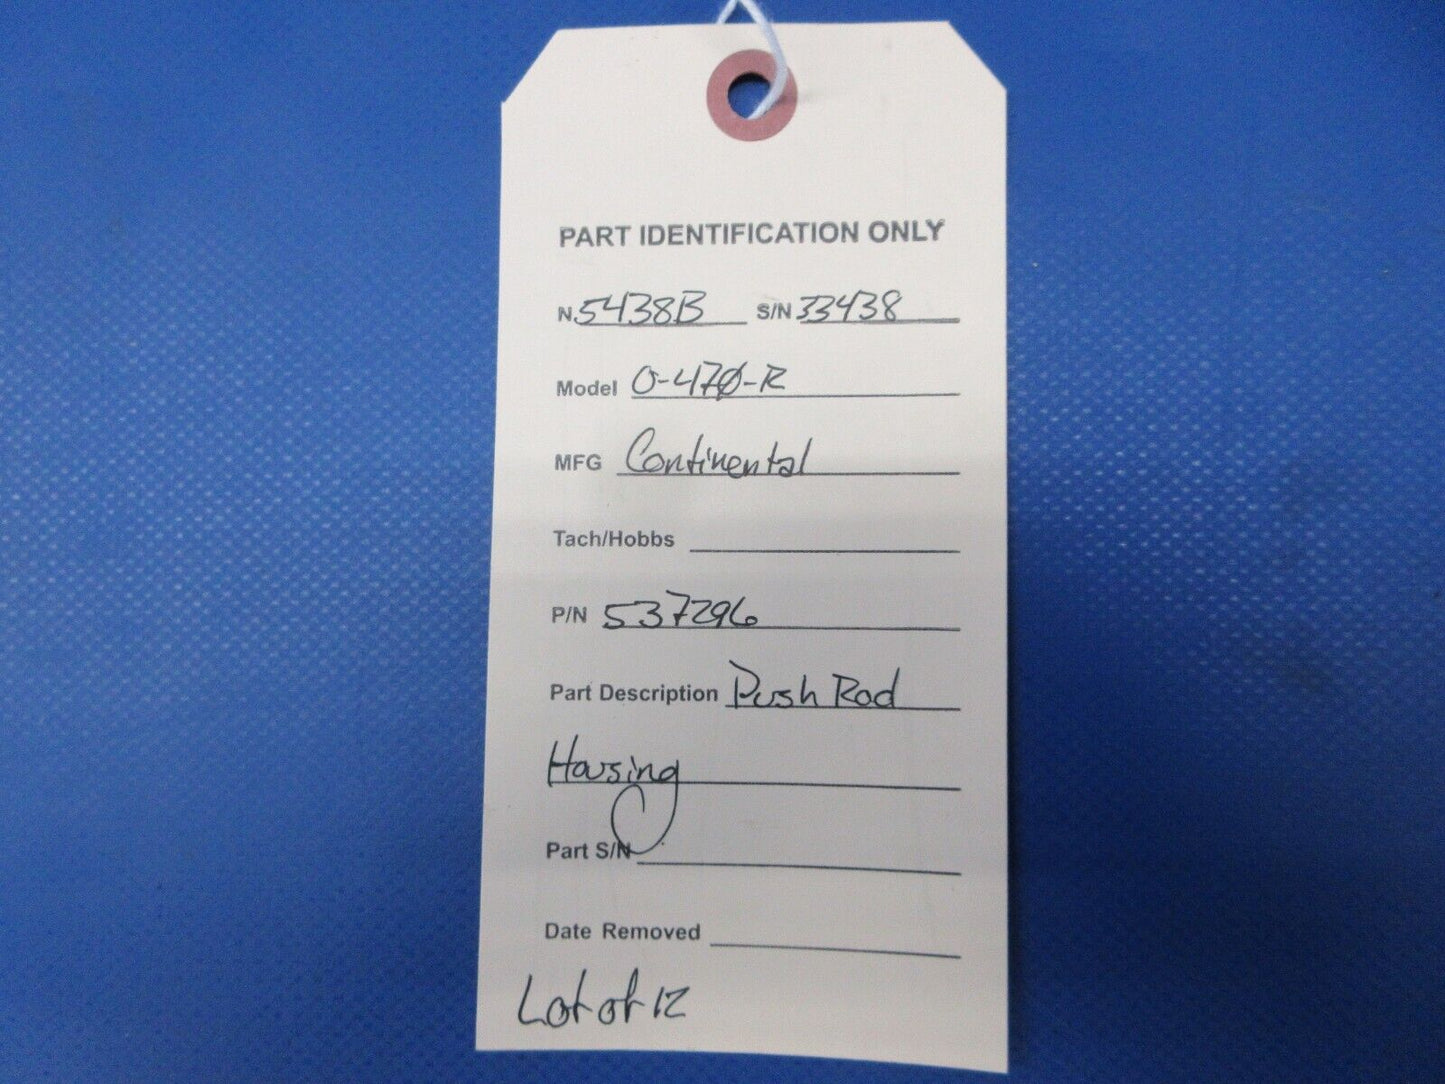 PART IDENTIFICATION ONLY
N 5438B S/N 33438
Model O-470-R
MFG Continental
Tach/Hobbs
P/N 537296
Part Description Push Rod
Housing
Part S/N
Date Removed
Lot of 12